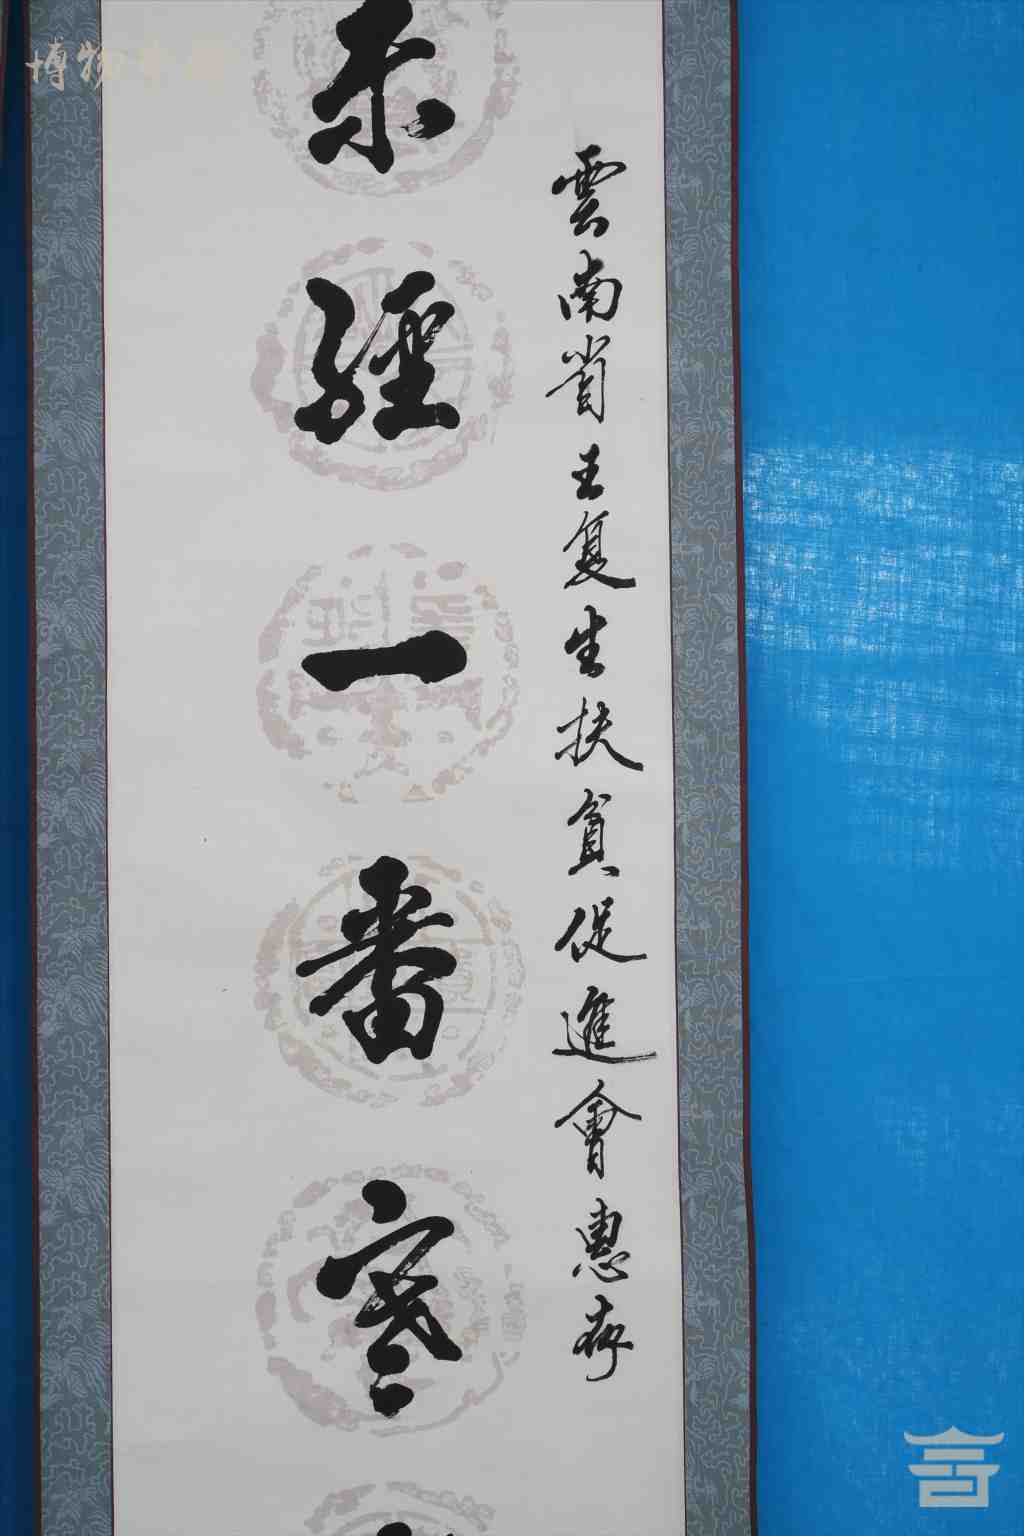 雲南省王复生扶貧促進會惠存
不經一番寒
博物中國